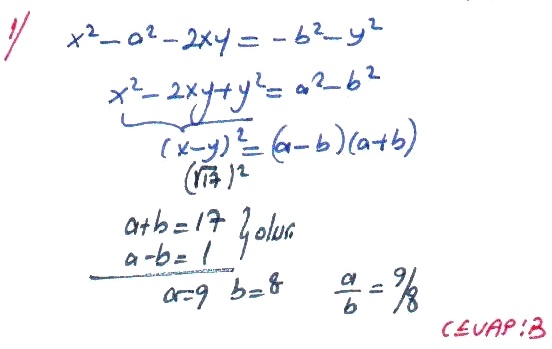 1/ x² - a² - 2xy = -b² - y²
x² - 2xy + y² = a² - b²
(x-y)² = (a-b)(a+b)
(√17)²
a+b = 17 } olur.
a-b = 1
a=9 b=8 a/b = 9/8
CEVAP: B